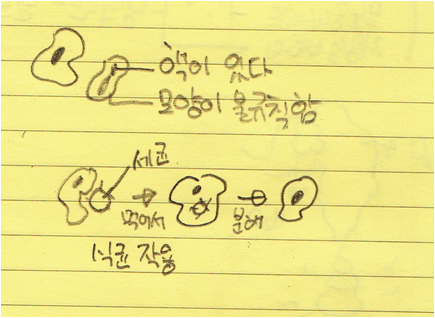 핵이 있다
모양이 불규칙함
세균
먹어서
분해
식균 작용